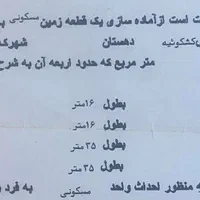 ت است از آماده سازی یک قطعه زمین مسکونی
کشکوئیه دهستان شهرک
متر مربع که حدود اربعه آن به شرح
بطول ۱۶ متر
بطول ۱۶ متر
بطول ۳۵ متر
بطول ۳۵ متر
منظور احداث واحد مسکونی به فرد